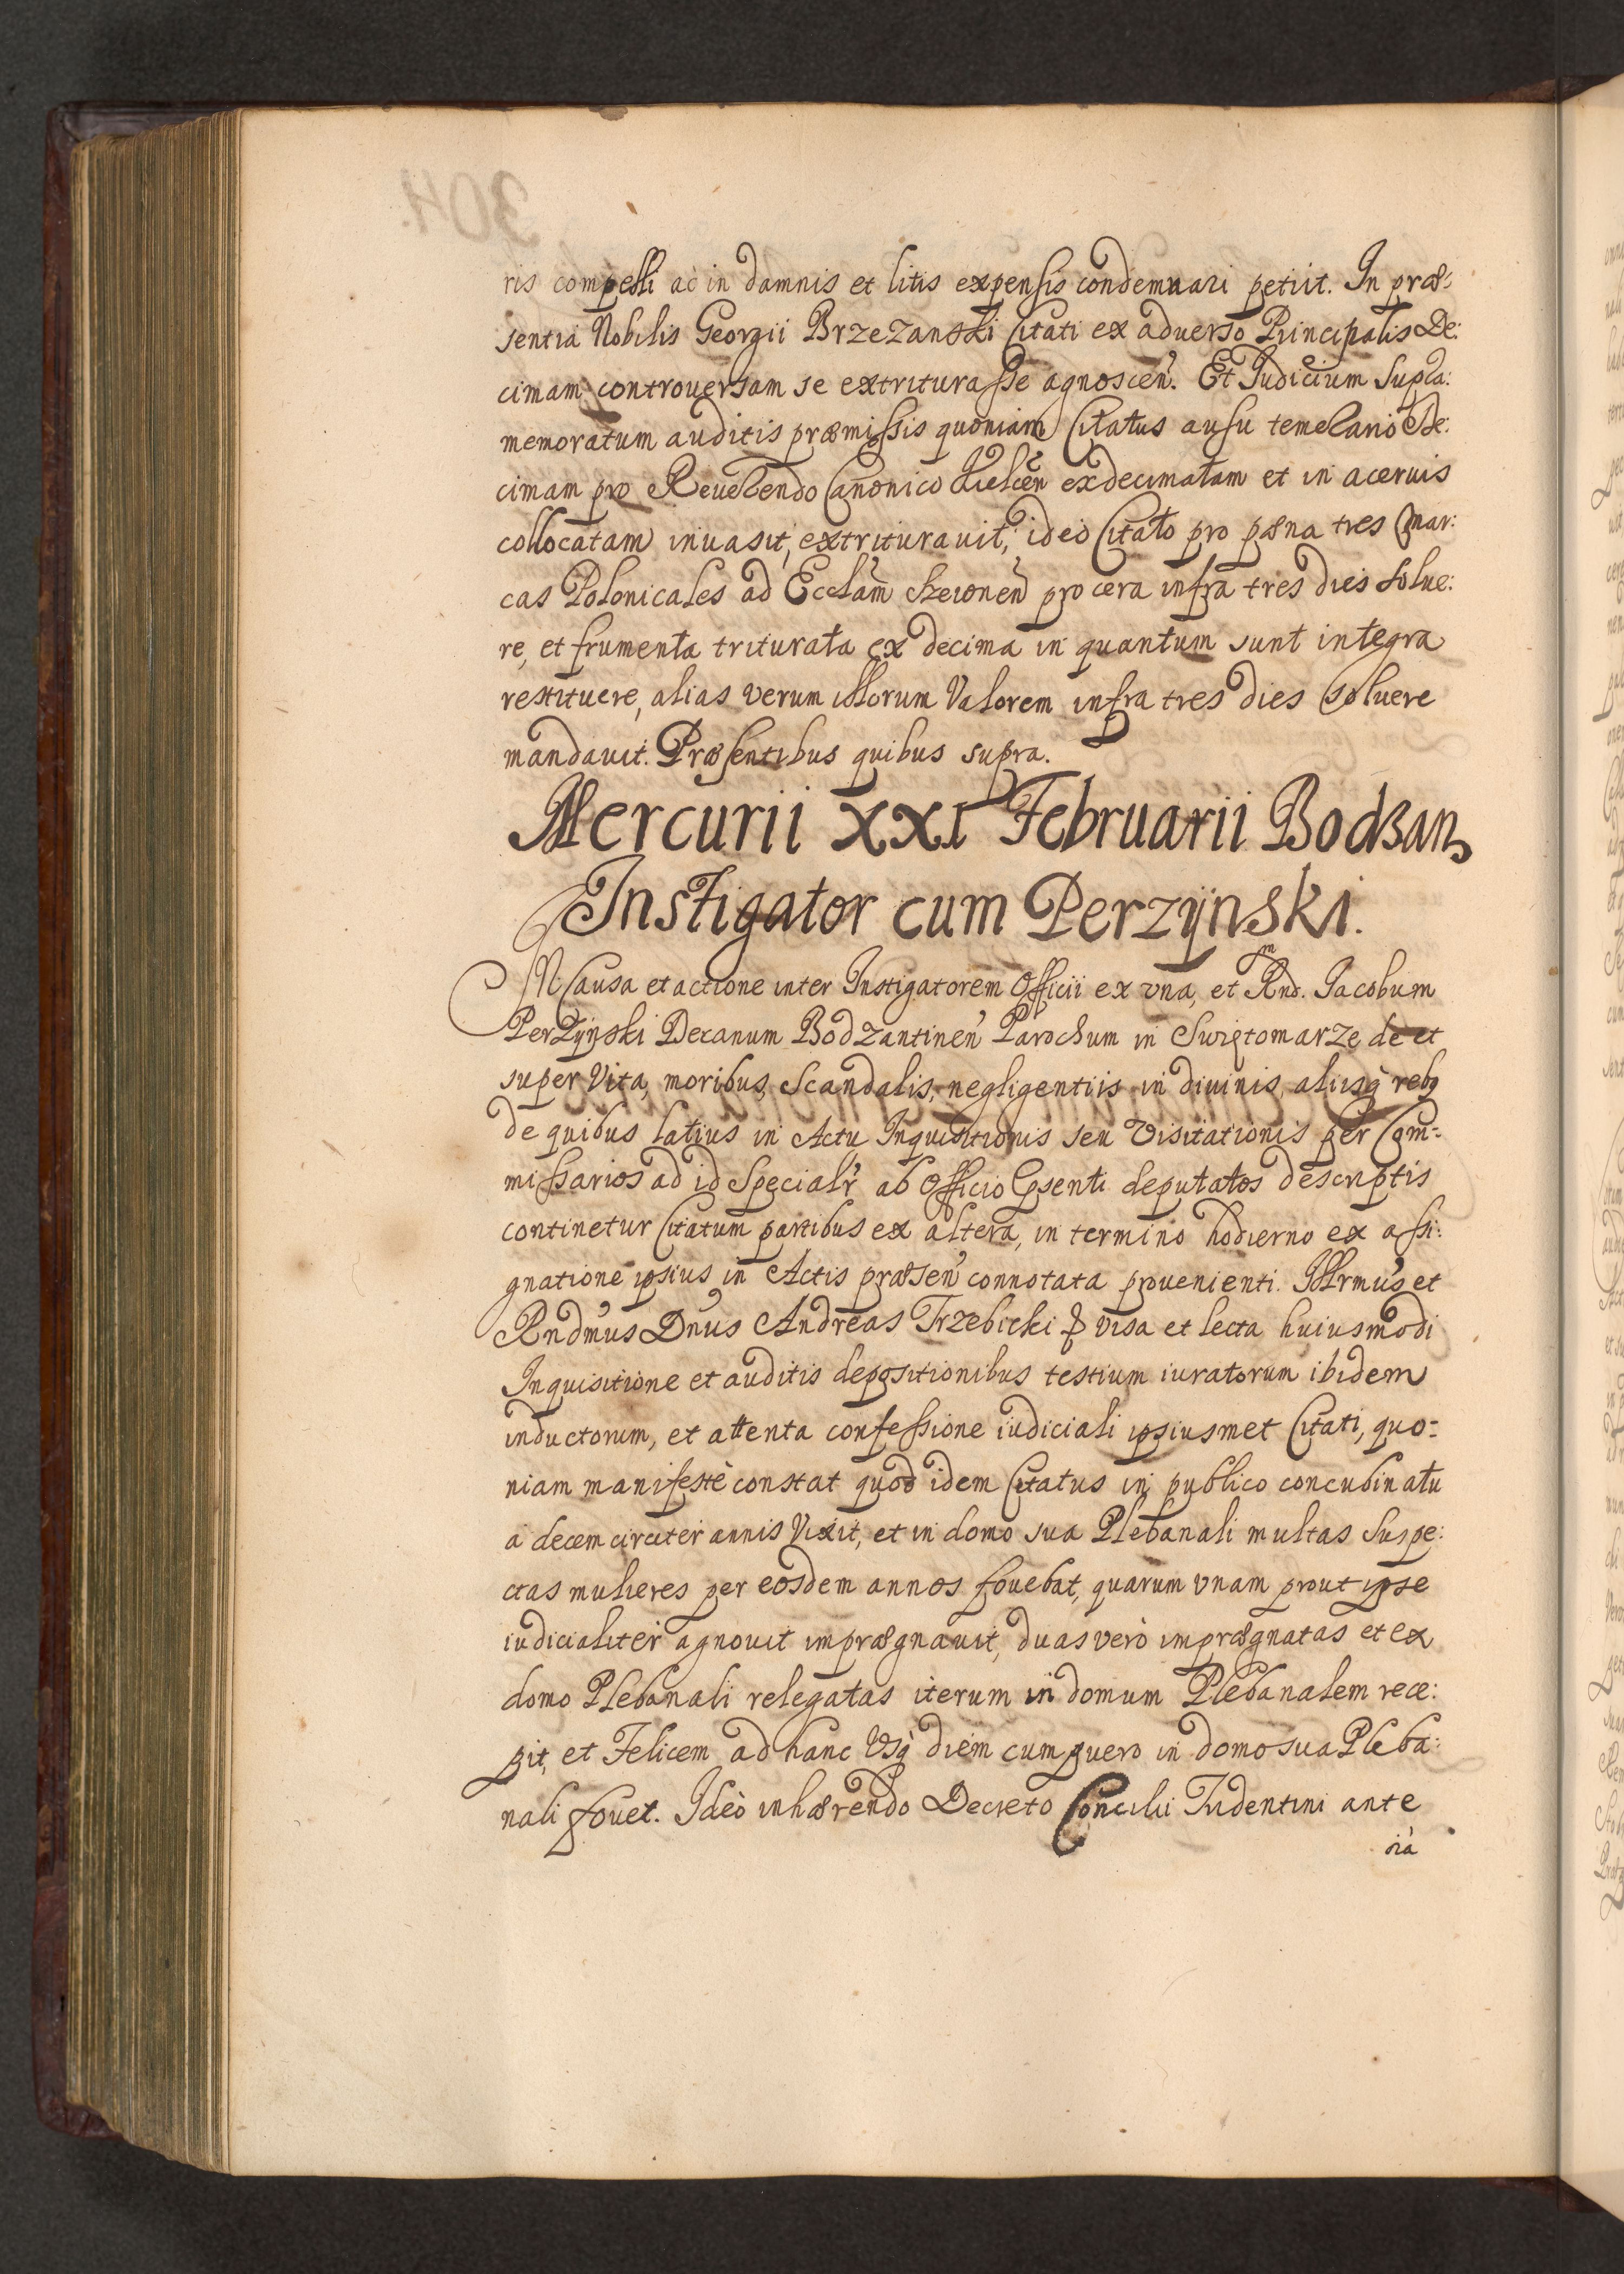 ris compelli ac in damnis et litis expensis condemnari petiit. In præ-
sentia Nobilis Georgii Brzezanski Citati ex aduerso Principalis De:
cimam controuersam se extriturasse agnoscen. Et Iudicium supra:
memoratum auditis præmissis quoniam Citatus ausu temerario De:
cimam pro Reuerendo Canonico Kielcen exdecimatam et in aceruis
collocatam inuasit, extriturauit, ideò Citato pro pæna tres Mar:
cas Polonicales ad Ecclam pro cera infra tres dies solue:
re, et frumenta triturata ex decima in quantum sunt integra
restituere, alias verum illorum Valorem infra tres dies soluere
mandauit. Præsentibus quibus supra.
Mercurii XXI Februarii Bodzan,
Instigator cum Perzÿnski.
IN Causa et actione inter Instigatorem Officii ex vna, et Rndm. Iacobum
Perzÿnski Decanum Bodzantinen Parochum in Swiętomarze de et
super Vita, moribus, Scandalis, negligentiis in diuinis, aliisq rebq
de quibus latius in Actu Inquisitionis seu Visitationis per Com-
missarios ad id Specialr ab Officio Pnsenti deputatos descriptis
continetur Citatum partibus ex altera, in termino hodierno ex assi:
gnatione ipsius in Actis præsen connotata prouenienti. Illrmus et
Rndmus Dnus Andreas Trzebicki visa et lecta huiusmodi
Inquisitione et auditis depositionibus testium iuratorum ibidem
inductorum, et attenta confessione iudiciali ipsiusmet Citati, quo-
niam manifestè constat quod idem Citatus in publico concubinatu
a decem circiter annis Vixit, et in domo sua Plebanali multas suspe:
ctas mulieres per eosdem annos fouebat, quarum vnam prout ipse
iudicialiter agnouit imprægnauit, duas verò imprægnatas et ex
domo Plebanali relegatas iterum in domum Plebanalem rece:
pit, et Felicem ad hanc Vsq diem cum puero in domo sua Pleba:
nali fouet. Ideò inhærendo Decreto Concilii Tridentini ante